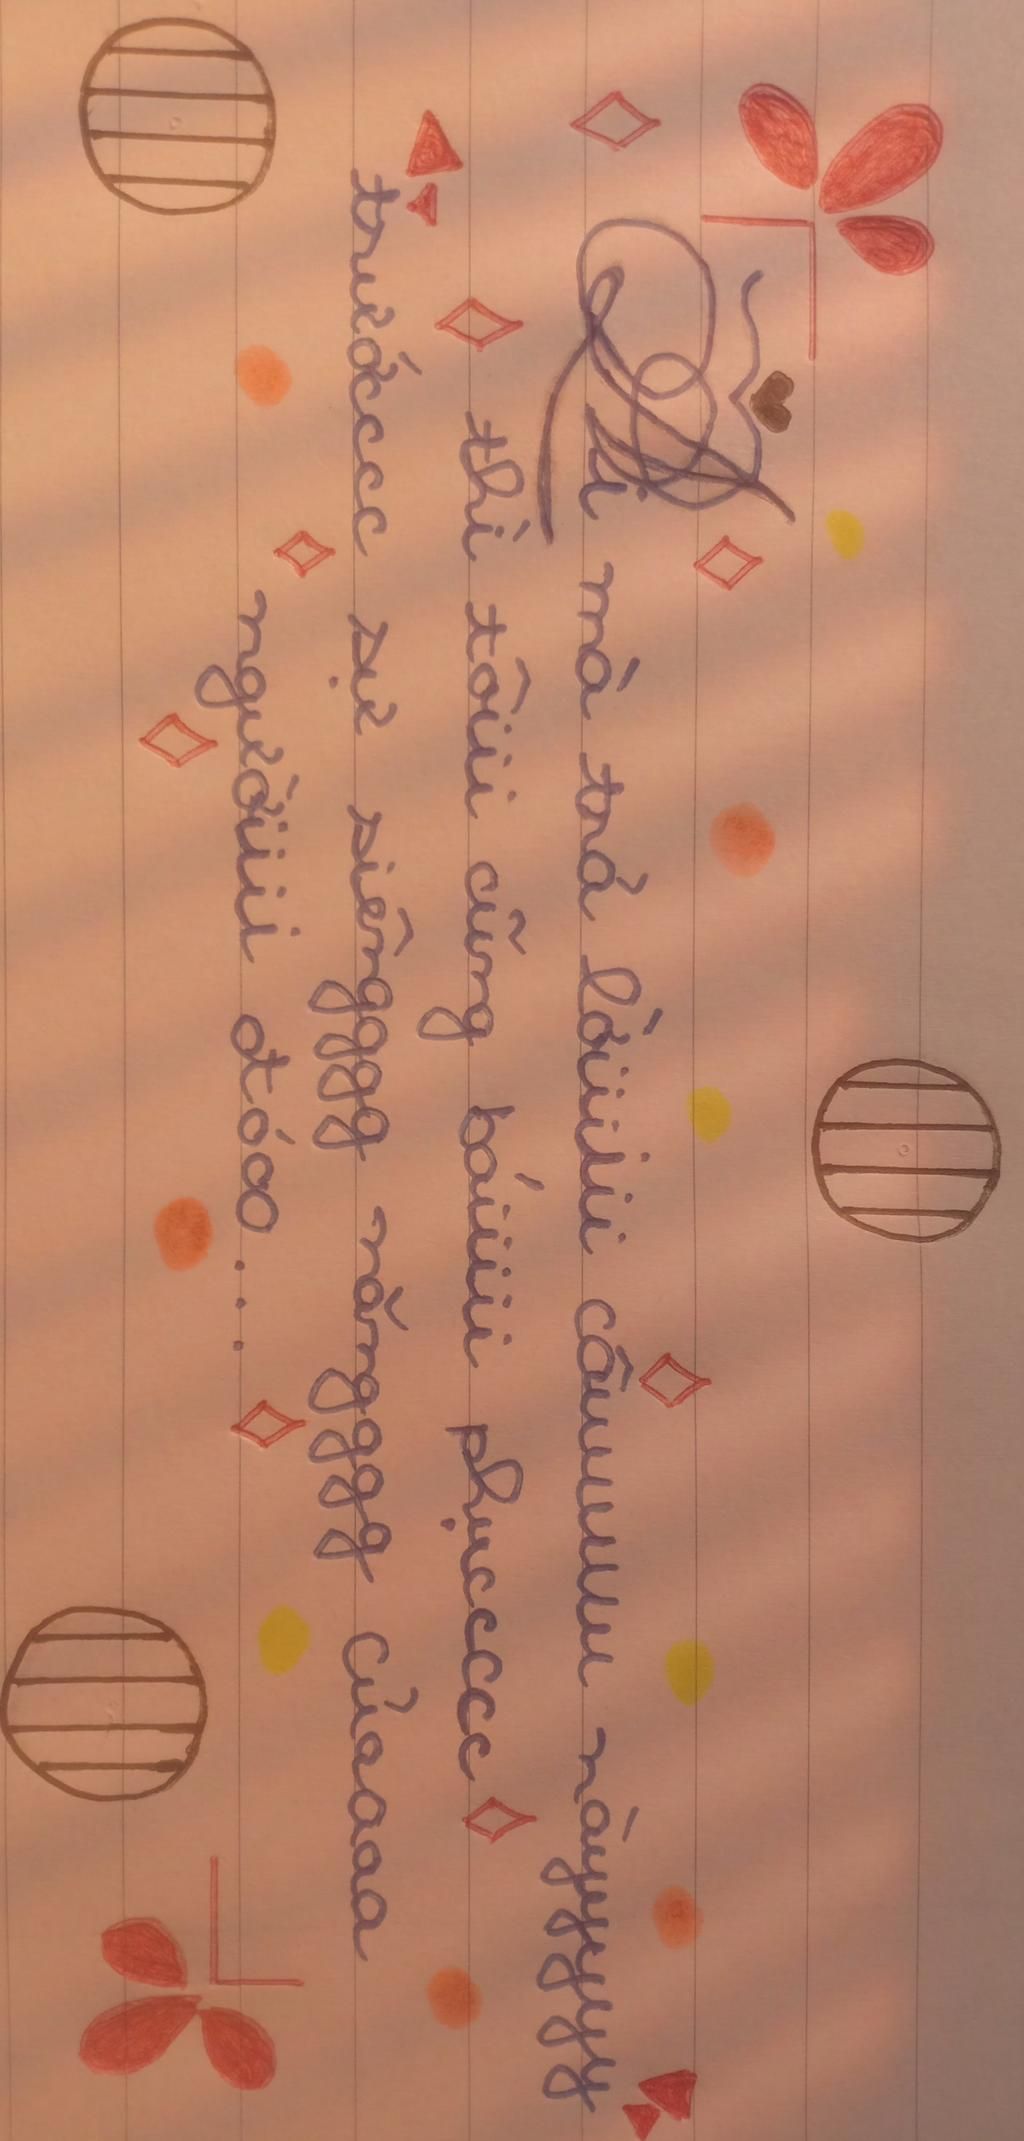 Ai mà trả lờiiiii câuuuuu nàyyyyy
thì tôiii cũng báiiii phụccccc
trướcccc sự siêngggg năngggg củaaaa
ngườiiii đóoo...